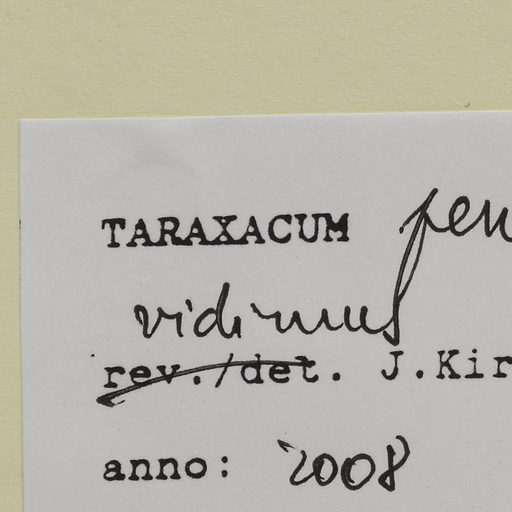 TARAXACUM pen
vidimus
rev./det. J.Kir
anno: 2008